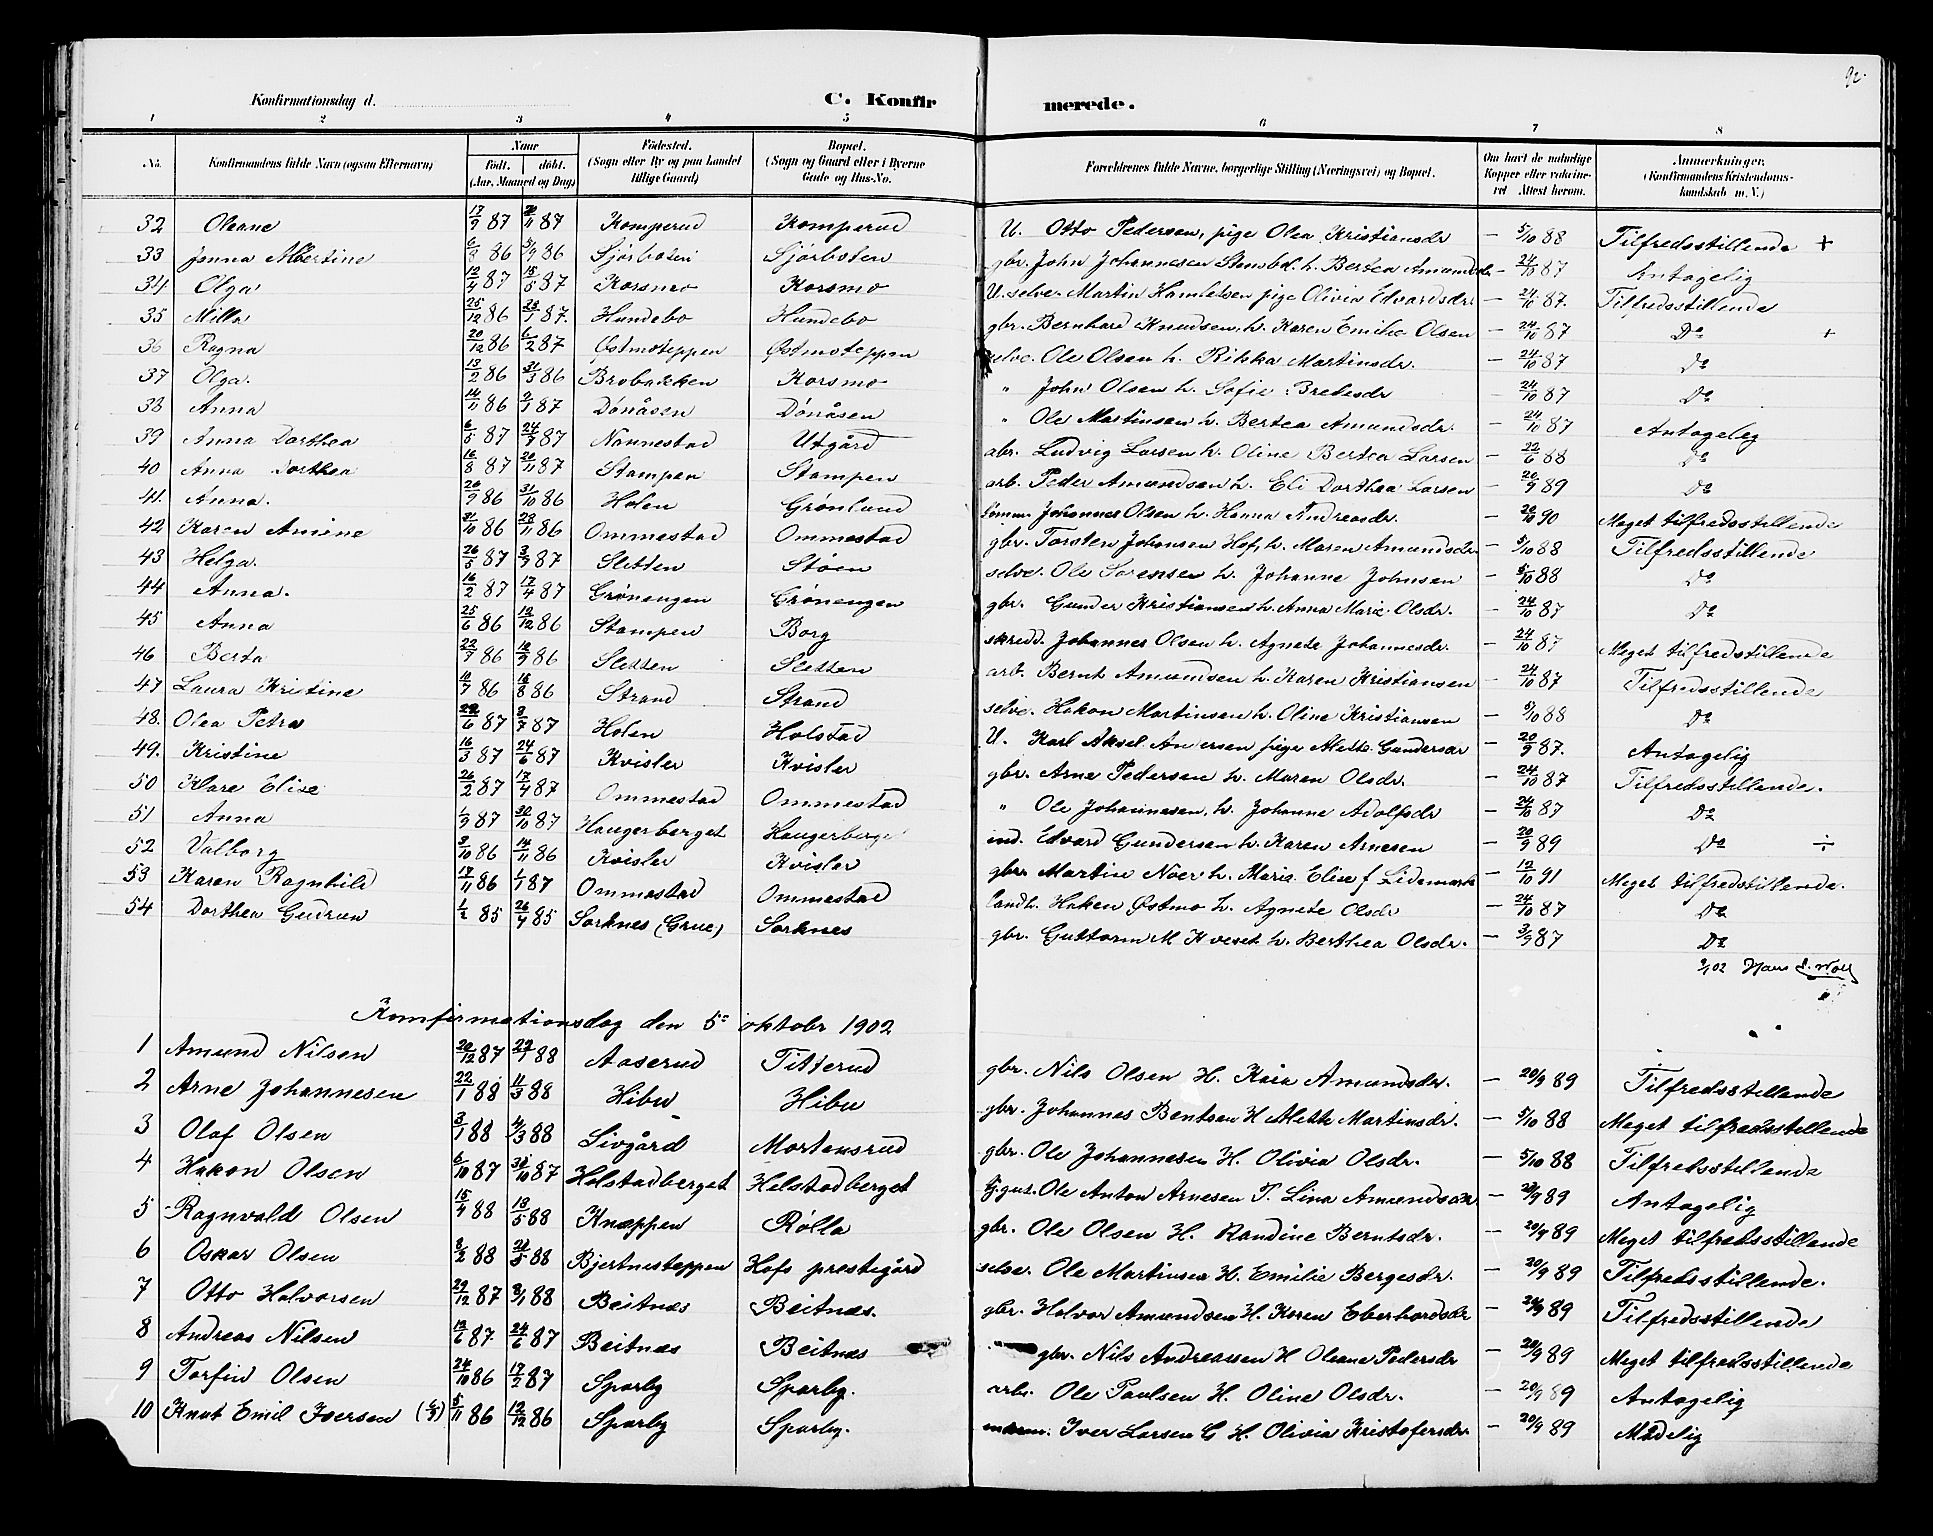 92.
Konfirmationsdag d.
C. Konfir merede.
1 2 3 4 5 6 7 8
No. Konfirmandens fulde Navn (ogsaa Efternavn) Naar født. døbt. (Aar, Maaned og Dag) Fødested. (Sogn eller By og paa Landet tillige Gaard) Bopæl. (Sogn og Gaard eller i Byerne Gade og Hus-No. Forældrenes fulde Navne, borgerlige Stilling (Næringsvei) og Bopæl. Om havt de naturlige Kopper eller vaccineret Attest herom. Anmærkninger. (Konfirmandens Kristendomskundskab m. V.)
32 Oleane 17/9 87 20/11 87 Komperud Komperud U. Otto Pedersen, pige Olea Kristiansdr — 5/10 88 Tilfredsstillende +
33 Jonna Albertine 86 86 Sjørboten Sjørboten gbr. John Johannesen Stensbøl. h. Bertea Amundsdr — 24/10 87 Antagelig
34 Olga 12/4 87 15/5 87 Korsmo Korsmo U. selve. Martin Hamletsen pige Olivia Edvardsdr — 24/10 87. Tilfredsstillende
35 Milla 25/12 86 23/1 87. Hundebo Hundebo gbr. Bernhard Knudsen, h. Karen Emilie Olsen — 24/10 87 Do +
36 Ragna 20/12 86 6/2 87 Østmoteppen Østmoteppen selve. Ole Olsen h. Rikka Martinsdr. — 24/10 87 Do
37 Olga. 13/2 86 21/3 86 Brobakken Korsmo " John Olsen h. Sofie Bredesdr — 24/10 87 Do
38 Anna 14/11 86 2/1 87 Dönåsen Dönåsen " Ole Martinsen h. Bertea Amundsdr. — 24/10 87 Antagelig
39 Anna Dorthea 6/5 87 24/7 87 Nannestad Utgård abr. Ludvig Larsen h. Oline Bertea Larsen — 22/6 88 Do
40 Anna Dorthea 16/8 87 20/11 87 Stampen Stampen arb. Peder Amundsen h. Eli Dorthea Larsen — 20/9 89 Do
41. Anna. 26/9 86 31/10 86 Holen Grönlund Johannes Olsen h. Hanna Andreasdr. — 20/10 90 Meget tilfredsstillende
42 Karen Amine 31/10 86 28/11 86 Ommestad Ommestad gbr. Torsten Johansen Hof, h. Maren Amundsdr. — 5/10 88 Tilfredsstillende
43 Helga. 26/5 87 3/7 87 Sletten Støen selve. Ole Sorensen h. Johanne Johnsen — 5/10 88 Do
44 Anna. 16/2 87 17/4 87 Grönengen Grönengen gbr. Gunder Kristiansen h. Anna Marie Olsdr. — 24/10 87 Do
45 Anna 25/6 86 12/12 86 Stampen Borg skredd. Johannes Olsen h. Agnete Johannesdr. — 24/10 87 Meget tilfredsstillende
46 Berta 22/7 86 12/9 86 Sletten Sletten arb. Bernt Amundsen h. Karen Kristiansen — 24/10 87 Tilfredsstillende
47 Laura Kristine 10/7 86 15/8 86 Strand Strand selve. Hakon Martinsen h. Oline Kristiansen — 5/10 88 Do
48. Olea Petra 22/6 87 3/7 87 Holen Holstad U. Karl Aksel Andersen pige Alette Gundersdr — 20/9 87. Antagelig
49. Kristine 16/3 87 24/6 87 Kvisler Kvisler gbr. Arne Pedersen h. Maren Olsdr. — 24/10 87 Tilfredsstillende.
50 Klare Elise 26/2 87 17/4 87 Ommestad Ommestad " Ole Johannesen, h. Johanne Adolfsdr — 24/10 87 Do
51 Anna 1/9 87 30/10 87 Haugerberget Haugerberget ind. Edvard Gundersen h. Karen Arnesen — 20/9 89 Do ÷
52 Valborg 3/10 86 14/11 86 Kvisler Kvisler gbr. Martin Nöer h. Maria Elise f. Lidemark 12/10 91 Meget tilfredsstillende.
53 Karen Ragnhild 17/11 86 1/1 87 Ommestad Ommestad landh. Haken Østmo h. Agnete Olsdr — 24/10 87 Do
54 Dorthea Gudrun 1/2 85 26/4 85 Sorknes (Grue) Sorknes gbr. Guttorm M Kveset h. Berthea Olsdr. — 3/9 87 Do
Hans
Konfirmationsdag den 5te oktobr 1902
1 Amund Nilsen 20/12 87 22/1 88 Aaserud Titterud gbr. Nils Olsen H. Kaia Amundsdr. — 20/9 89 Tilfredsstillende
2 Arne Johannesen 22/1 88 11/3 88 Hibu Hibu gbr. Johannes Bentsen H Alette Martinsdr. — 5/10 88 Meget tilfredsstillende
3 Olaf Olsen 3/1 88 4/3 88 Livgård Mortensrud gbr. Ole Johannesen H. Olivia Olsdr. — 5/10 88 Tilfredsstillende
4 Hakon Olsen 6/10 87 31/10 87 Holstadberget Helstadberget Gjgut. Ole Anton Arnesen T. Lina Amundsdr — 20/9 89 Antagelig
5 Ragnvald Olsen 15/4 88 18/5 88 Knappen Rölla gbr. Ole Olsen H. Randine Berntsdr. — 20/9 89 Meget tilfredsstillende
6 Oskar Olsen 8/2 88 21/5 88 Bjertnesteppen Hofs prestegård selve. Ole Martinsen H. Emilie Bergesdr. — 20/9 89 Tilfredsstillende.
7 Otto Halvorsen 29/12 87 8/1 88 Beitnæs Beitnæs. gbr. Halvor Amundsen H. Karen Eberhardsdr — 20/9 89 Tilfredsstillende
8 Andreas Nilsen 12/6 87 24/6 87 Beitnæs Beitnæs gbr. Nils Andreassen H Oleane Pedersdr — 20/9 89 Meget tilfredsstillende
9 Torfin Olsen 24/10 86 17/2 87 Sparby Sparby. arb. Ole Paulsen H. Oline Olsdr. — 20/9 89 Antagelig
10 Knut Emil Iversen 5/11 86 12/12 86 Sparby Sparby. Iver Larsen G H. Olivia Kristofersdr. — 20/9 89 Mådelig